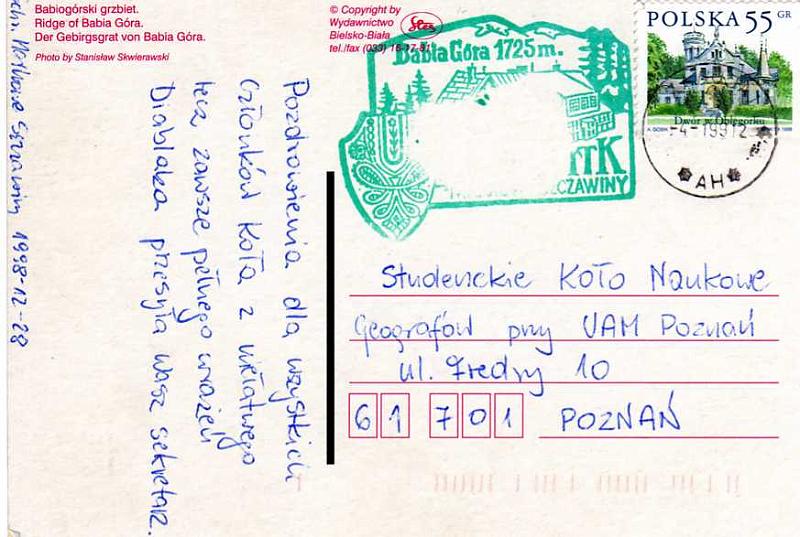 Babiogórski grzbiet.
Ridge of Babia Góra.
Der Gebirgsgrat von Babia Góra.
Photo by Stanisław Skwierawski
© Copyright by
Wydawnictwo
Bielsko-Biała
tel./fax (033) 16-17-81
Babia Góra 1725 m.
POLSKA 55 GR
Dwór w Obięgorku
-4-1991 2
AH
Pozdrowienia dla wszystkich
członków Koła z niełatwego
lecz zawsze pełnego wrażeń
Diablaka przesyła Wasz sekretarz.
1998-12-28
Studenckie Koło Naukowe
Geografów przy UAM Poznań
ul. Fredry 10
61 701 POZNAŃ